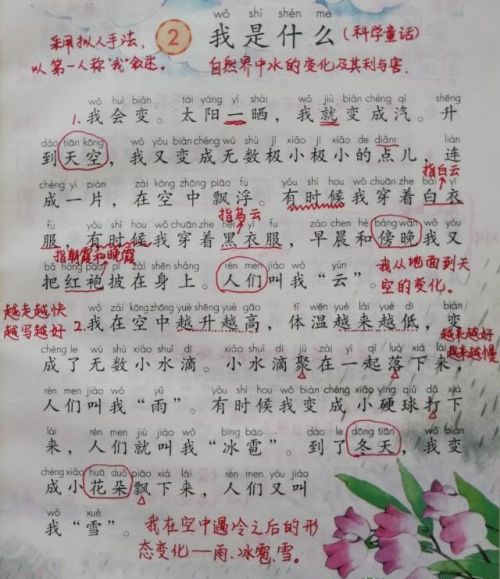 wǒ shì shén me
采用拟人手法、 2 我是什么 (科学童话)
以第一人称"我"叙述。 自然界中水的变化及其利与害.
wǒ huì biàn tài yáng yí shài wǒ jiù biàn chéng qì shēng
1. 我会变。太阳一晒，我就变成汽。升
dào tiān kōng wǒ yòu biàn chéng wú shù jí xiǎo jí xiǎo de diǎnr lián
到天空，我又变成无数极小极小的点儿，连
指白云
chéng yí piàn zài kōng zhōng piāo fú yǒu shí hou wǒ chuān zhe bái yī
成一片，在空中飘浮。有时候我穿着白衣
指乌云
fu yǒu shí hou wǒ chuān zhe hēi yī fu zǎo chen hé bàng wǎn wǒ yòu
服，有时候我穿着黑衣服，早晨和傍晚我又
指朝霞和晚霞
bǎ hóng páo pī zài shēn shang rén men jiào wǒ yún
把红袍披在身上。人们叫我"云"。
我从地面到天
空的变化。
越走越快
越写越好
wǒ zài kōng zhōng yuè shēng yuè gāo tǐ wēn yuè lái yuè dī biàn
2. 我在空中越升越高，体温越来越低，变
越来越好
越来越慢
chéng le wú shù xiǎo shuǐ dī xiǎo shuǐ dī jù zài yì qǐ luò xià lái
成了无数小水滴。小水滴聚在一起落下来，
rén men jiào wǒ yǔ yǒu shí hou wǒ biàn chéng xiǎo yìng qiú dǎ xià
人们叫我"雨"。有时候我变成小硬球打下
lái rén men jiù jiào wǒ bīng báo dào le dōng tiān wǒ biàn
来，人们就叫我"冰雹"。到了冬天，我变
chéng xiǎo huā duǒ piāo xià lái rén men yòu jiào
成小花朵飘下来，人们又叫
wǒ xuě
我"雪"。 我在空中遇冷之后的形
态变化——雨.冰雹.雪。